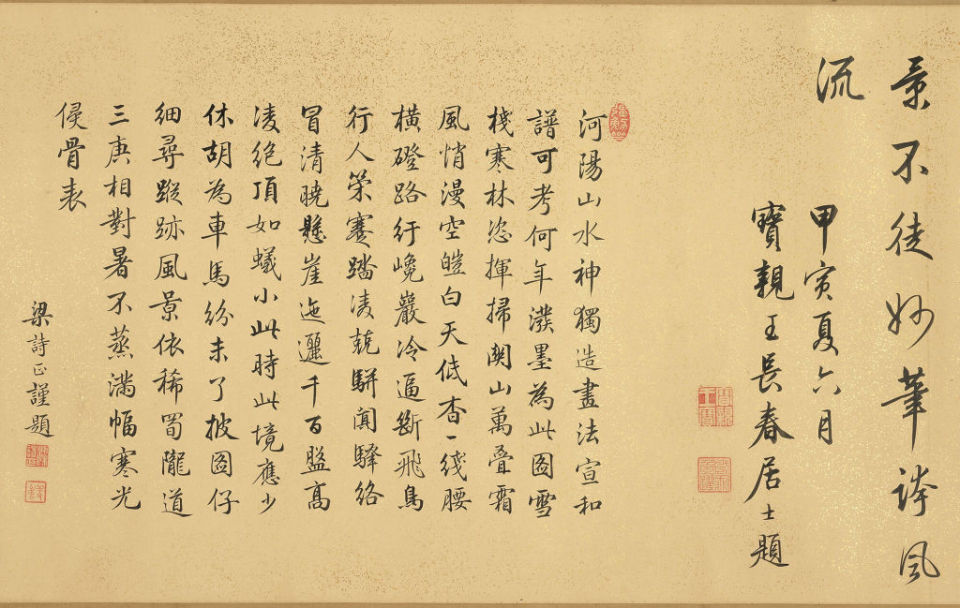 景不徒妙筆誇風
流
甲寅夏六月
寶親王長春居士題
河陽山水神獨造畫法宣和
譜可考何年潑墨為此圖雪
棧寒林恣揮掃關山萬疊霜
風悄漫空皚白天低杳一綫腰
橫磴路行巉巖冷逼斷飛鳥
行人策蹇踏凌兢駢闐驛絡
冒清曉懸崖迤邐千百盤高
凌絕頂如蟻小此時此境應少
休胡為車馬紛未了披圖仔
細尋蹤跡風景依稀蜀隴道
三庚相對暑不蒸滿幅寒光
侵骨表
梁詩正謹題